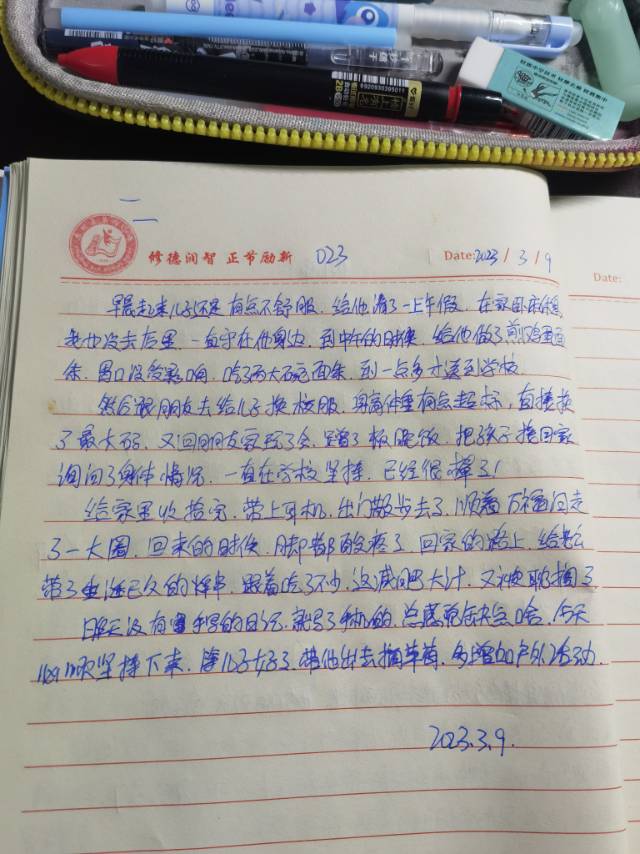 修德润智 正节励新 023 Date: 2023/3/9
Date:
早晨起来儿子还是有点不舒服.给他请了一上午假.在家卧床休息
我也没去店里.一直守在他身边.到中午的时候.给他做了煎鸡蛋面
条.胃口没受影响.吃了两大碗面条.到一点多才送到学校.
然后跟朋友去给儿子换校服.身高体重有点超标,直接换
了最大码.又回朋友家玩了会.蹭了顿晚饭.把孩子接回家
询问了身体情况.一直在学校坚持.已经很棒了!
给家里收拾完.带上耳机.出门散步去了.顺着万福河走
了一大圈.回来的时候.脚都酸疼了.回家的路上.给老公
带了垂涎已久的烤串.跟着吃了不少.这减肥大计.又被耽搁了
昨天没有写手写的日记.就写了手机的.总感觉缺点啥.今天
继续坚持下来.等儿子好了.带他出去摘草莓.多增加户外活动.
2023.3.9.